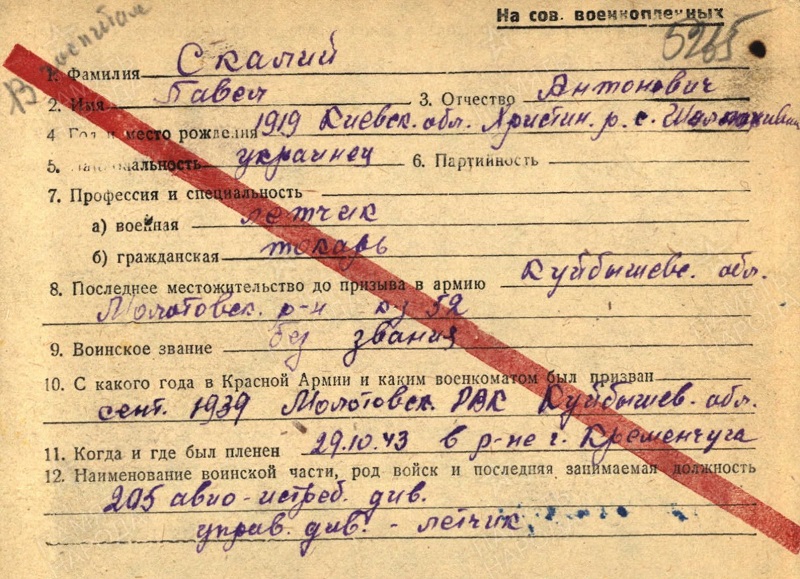 На сов. военнопленных
5265
В госпитал
1. Фамилия Скалий
2. Имя Павел 3. Отчество Антонович
4 Год и место рождения 1919 Киевск. обл. Христин. р. с.
5. Национальность украинец 6. Партийность
7. Профессия и специальность
а) военная летчик
б) гражданская токарь
8. Последнее местожительство до призыва в армию Куйбышевс. обл.
Молотовск. р-н 52
9. Воинское звание без звания
10. С какого года в Красной Армии и каким военкоматом был призван
сент. 1939 Молотовск. РВК Куйбышев. обл.
11. Когда и где был пленен 29.10.43 в р-не г. Кременчуга
12. Наименование воинской части, род войск и последняя занимаемая должность
205 авио-истреб. див.
управ. див. - летчик